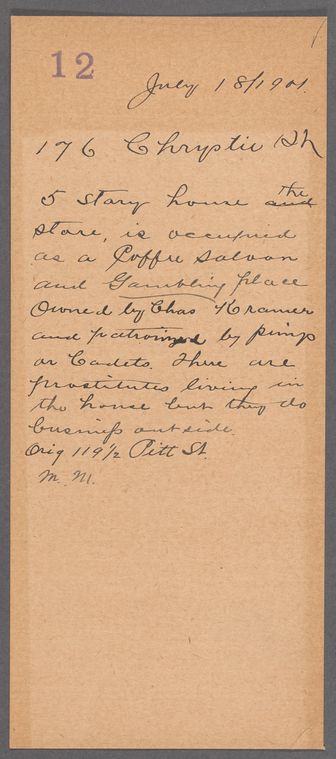 12
July 18/1901.
176 Chrystie St
5 story house and the
store, is occupied
as a Coffee saloon
and Gambling place
Owned by Chas Kramer
and patronized by pimp
or Cadets. There are
prostitutes living in
the house but they do
business outside.
Orig 119 1/2 Pitt St.
M. M.